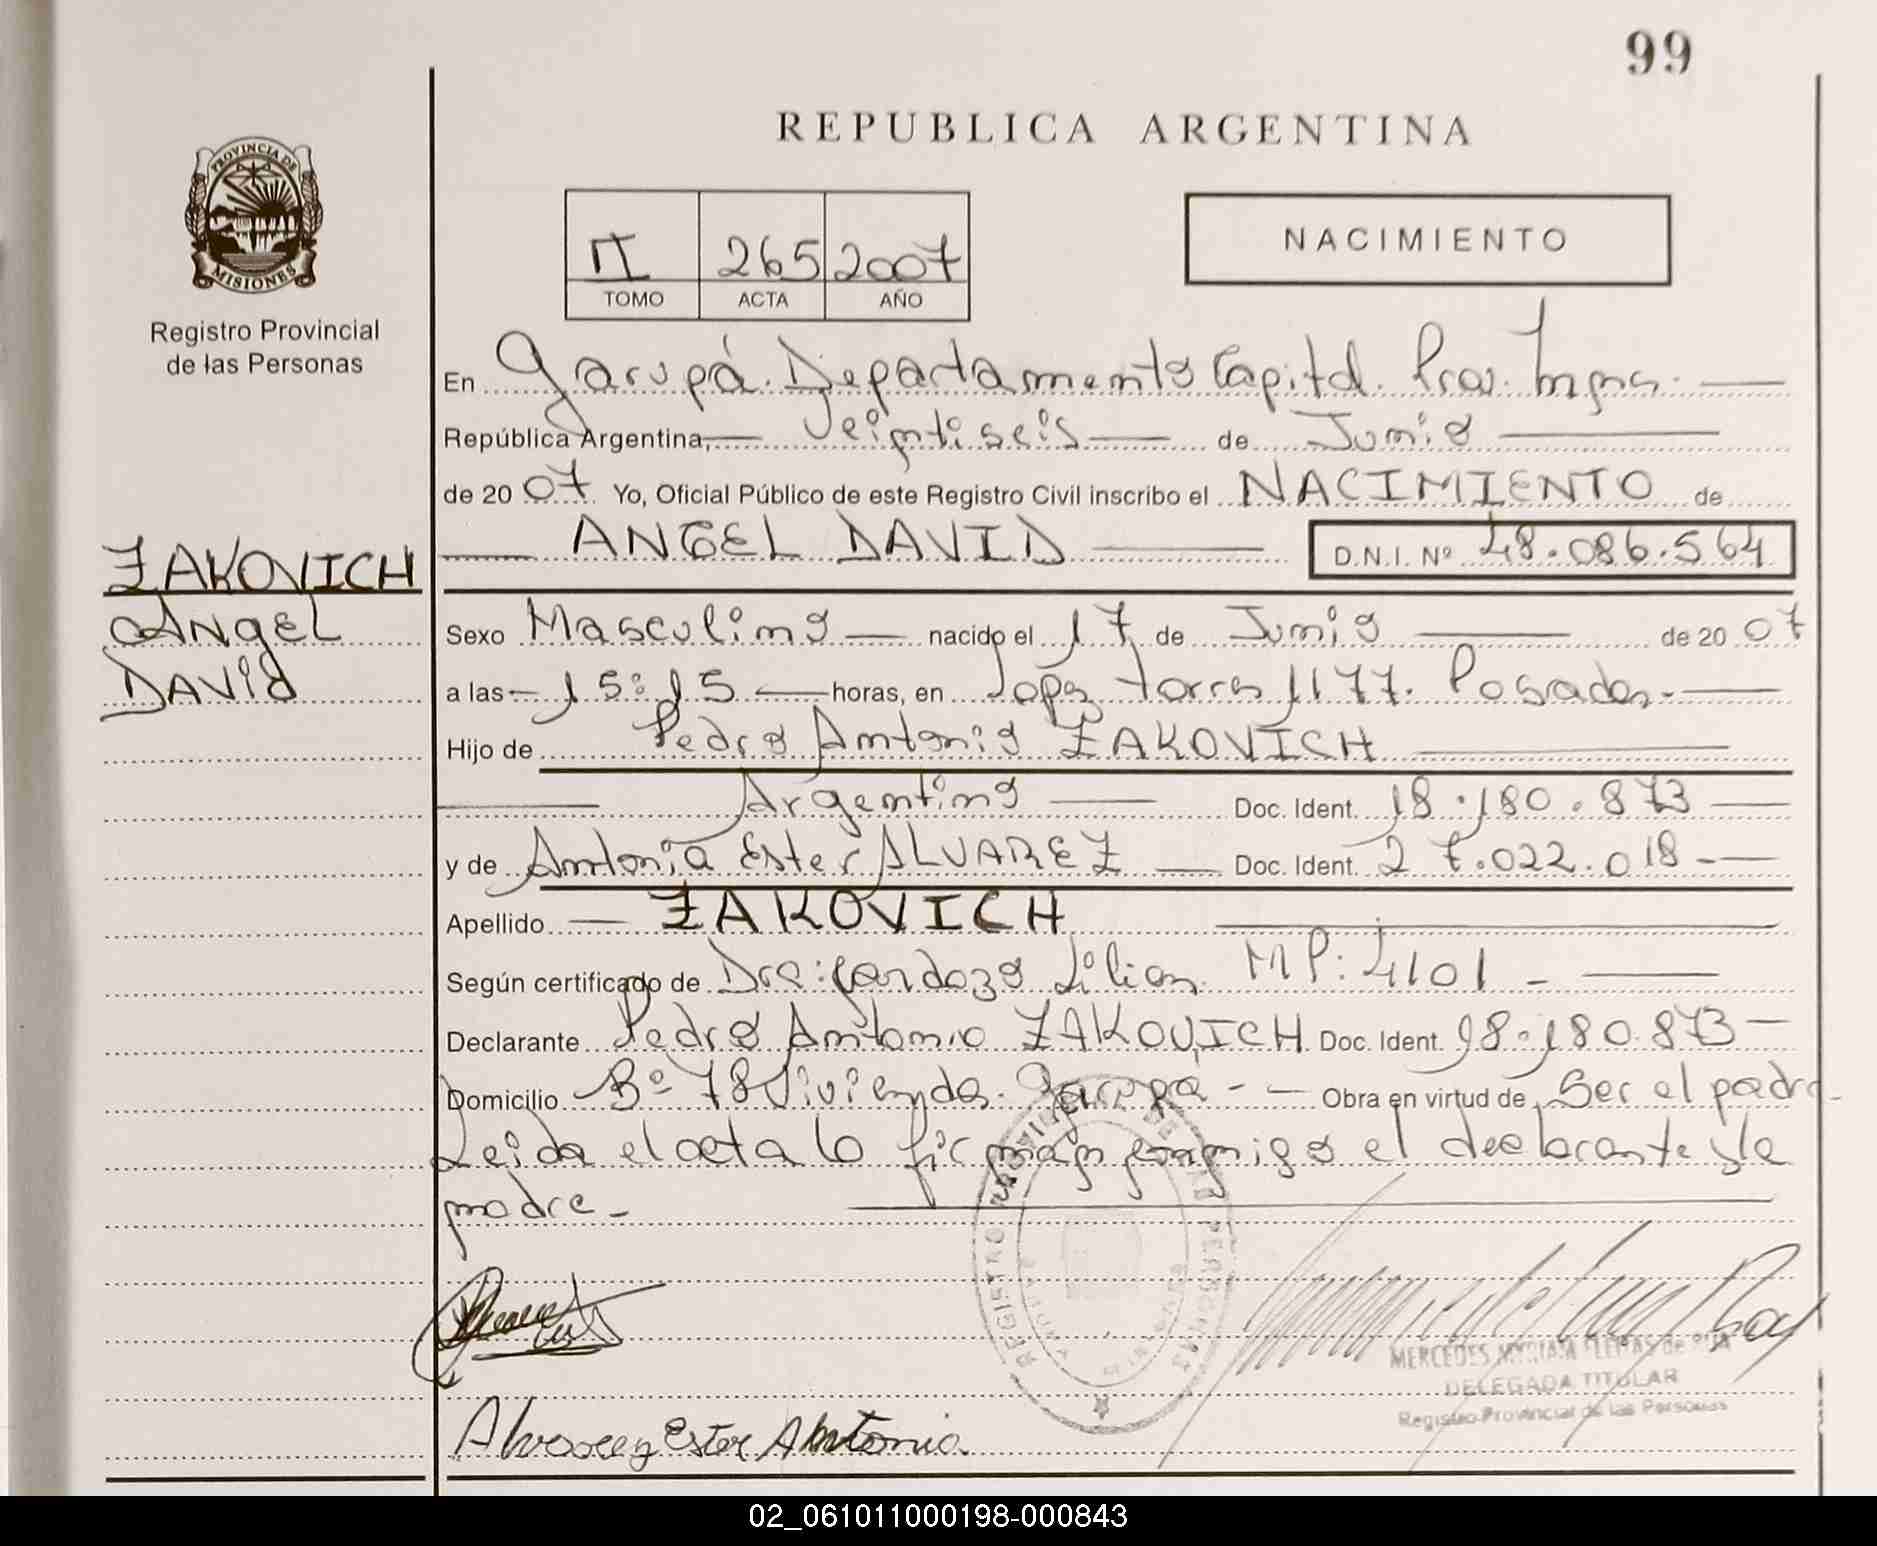 99
REPUBLICA ARGENTINA
PROVINCIA DE
MISIONES
Registro Provincial
de las Personas
II 265 2007
TOMO ACTA AÑO
NACIMIENTO
En Garupá. Departamento Capital. Pcia. Mnes.
República Argentina, Veintiseis de Junio
de 20 07 Yo, Oficial Público de este Registro Civil inscribo el NACIMIENTO de
ANGEL DAVID D.N.I. Nº 48.086.564
ZAKOVICH
Angel
David
Sexo Masculino nacido el 17 de Junio de 20 07
a las 15:15 horas, en Lopez Torres 1177. Posadas.
Hijo de Pedro Antonio ZAKOVICH
Argentino Doc. Ident. 18.180.873
y de Antonia Ester ALVAREZ Doc. Ident. 27.022.018
Apellido ZAKOVICH
Según certificado de Dra: Cardozo Lilian MP: 4101
Declarante Pedro Antonio ZAKOVICH Doc. Ident. 18.180.873
Domicilio Bº 78 Viviendas. Garupá Obra en virtud de Ser el padre
Leida el acta lo firman conmigo el declarante y la
madre.
REGISTRO PROVINCIAL DE LAS PERSONAS
Alvarez Ester Antonia
DELEGADA TITULAR
Registro Provincial de las Personas
02_061011000198-000843